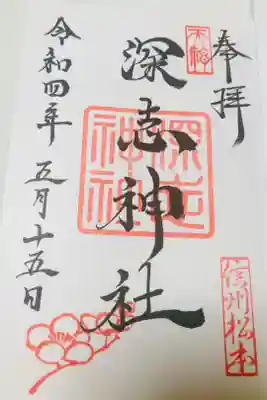 奉拝
天神
深志神社
深志
神社
令和四年 五月十五日
信州松本